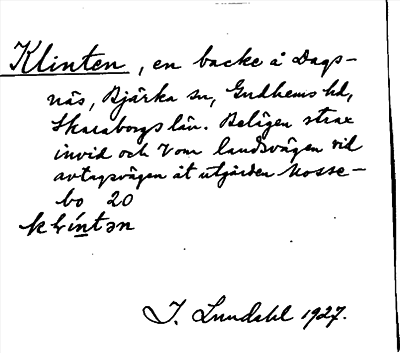 Klinten, en backe å Dags-
näs, Bjärka sn, Gudhems hd,
Skaraborgs län. Belägen strax
invid och V om landsvägen vid
avtagsvägen åt utgården Mosse-
bo 20
I. Lundahl 1927.